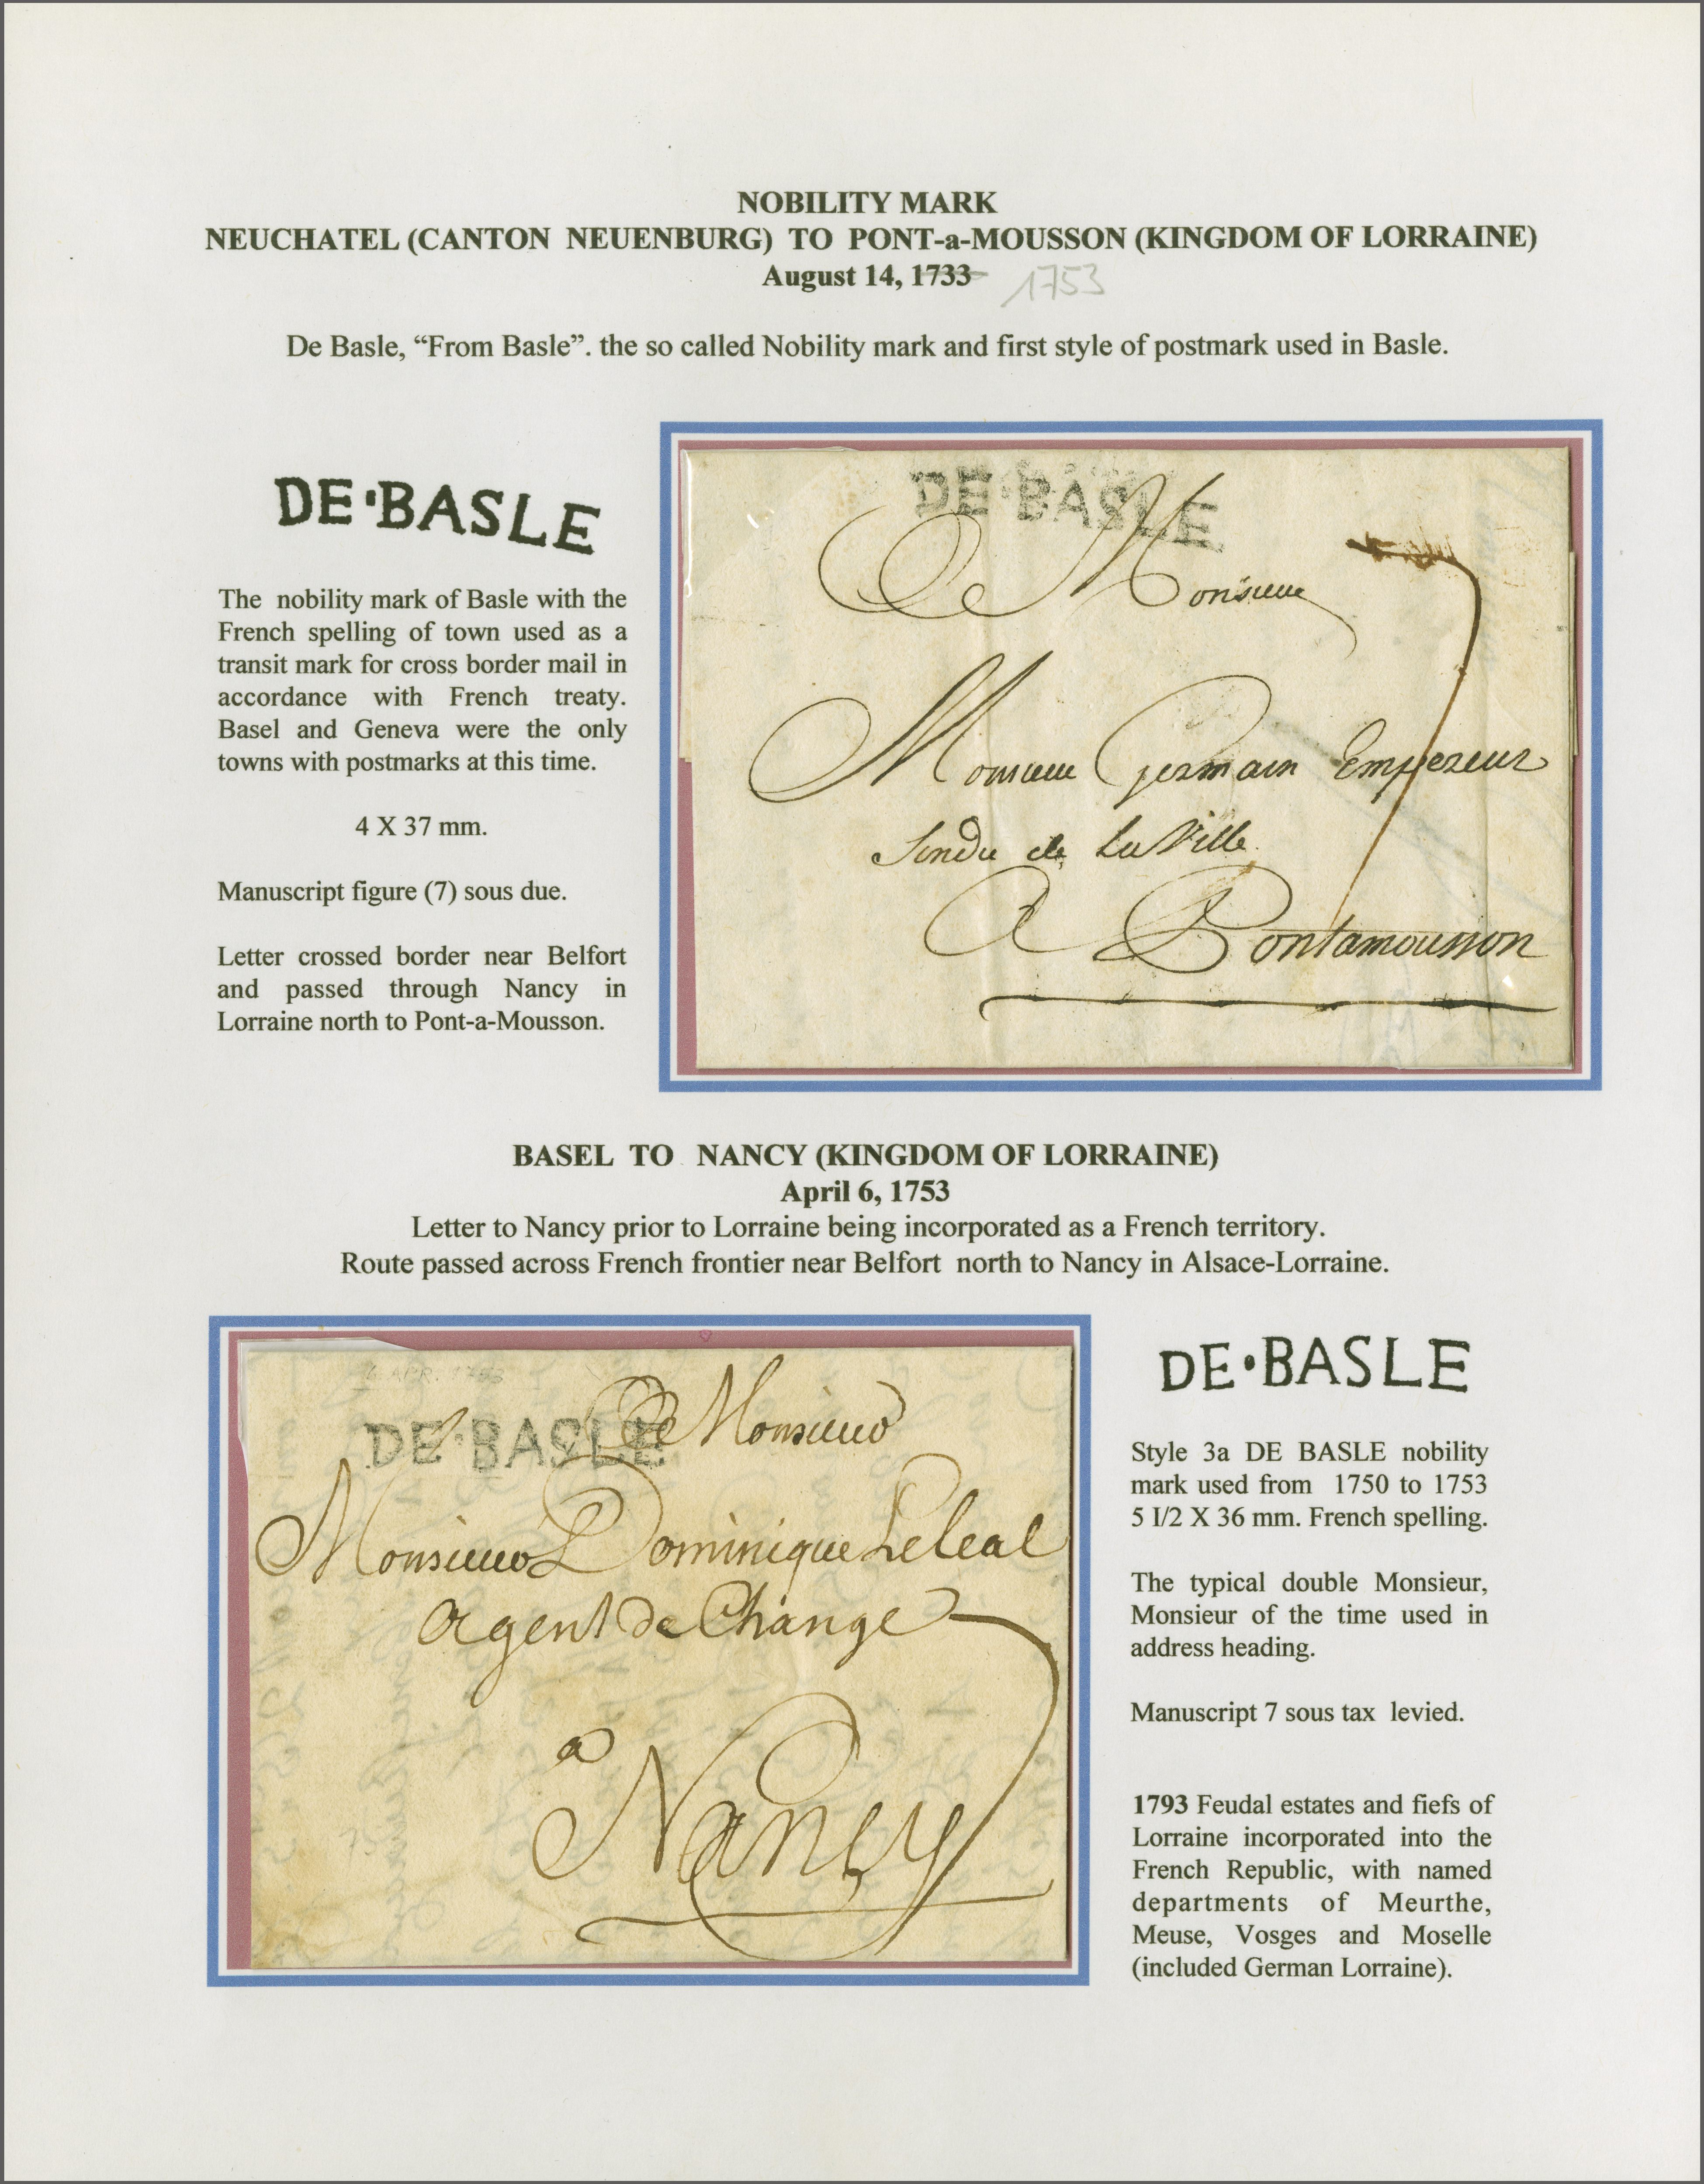 NOBILITY MARK
NEUCHATEL (CANTON NEUENBURG) TO PONT-a-MOUSSON (KINGDOM OF LORRAINE)
August 14, 1733 1753
De Basle, “From Basle”. the so called Nobility mark and first style of postmark used in Basle.
DE•BASLE
The nobility mark of Basle with the
French spelling of town used as a
transit mark for cross border mail in
accordance with French treaty.
Basel and Geneva were the only
towns with postmarks at this time.
4 X 37 mm.
Manuscript figure (7) sous due.
Letter crossed border near Belfort
and passed through Nancy in
Lorraine north to Pont-a-Mousson.
DE•BASLE
Monsieur
7
Monsieur Germain Empereur
de La Ville
A Pontamousson
BASEL TO NANCY (KINGDOM OF LORRAINE)
April 6, 1753
Letter to Nancy prior to Lorraine being incorporated as a French territory.
Route passed across French frontier near Belfort north to Nancy in Alsace-Lorraine.
6 APR. 1753
DE•BASLE
Monsieur
Monsieur Dominique Leleal
agent de Change
7
a
Nancy
DE•BASLE
Style 3a DE BASLE nobility
mark used from 1750 to 1753
5 I/2 X 36 mm. French spelling.
The typical double Monsieur,
Monsieur of the time used in
address heading.
Manuscript 7 sous tax levied.
1793 Feudal estates and fiefs of
Lorraine incorporated into the
French Republic, with named
departments of Meurthe,
Meuse, Vosges and Moselle
(included German Lorraine).